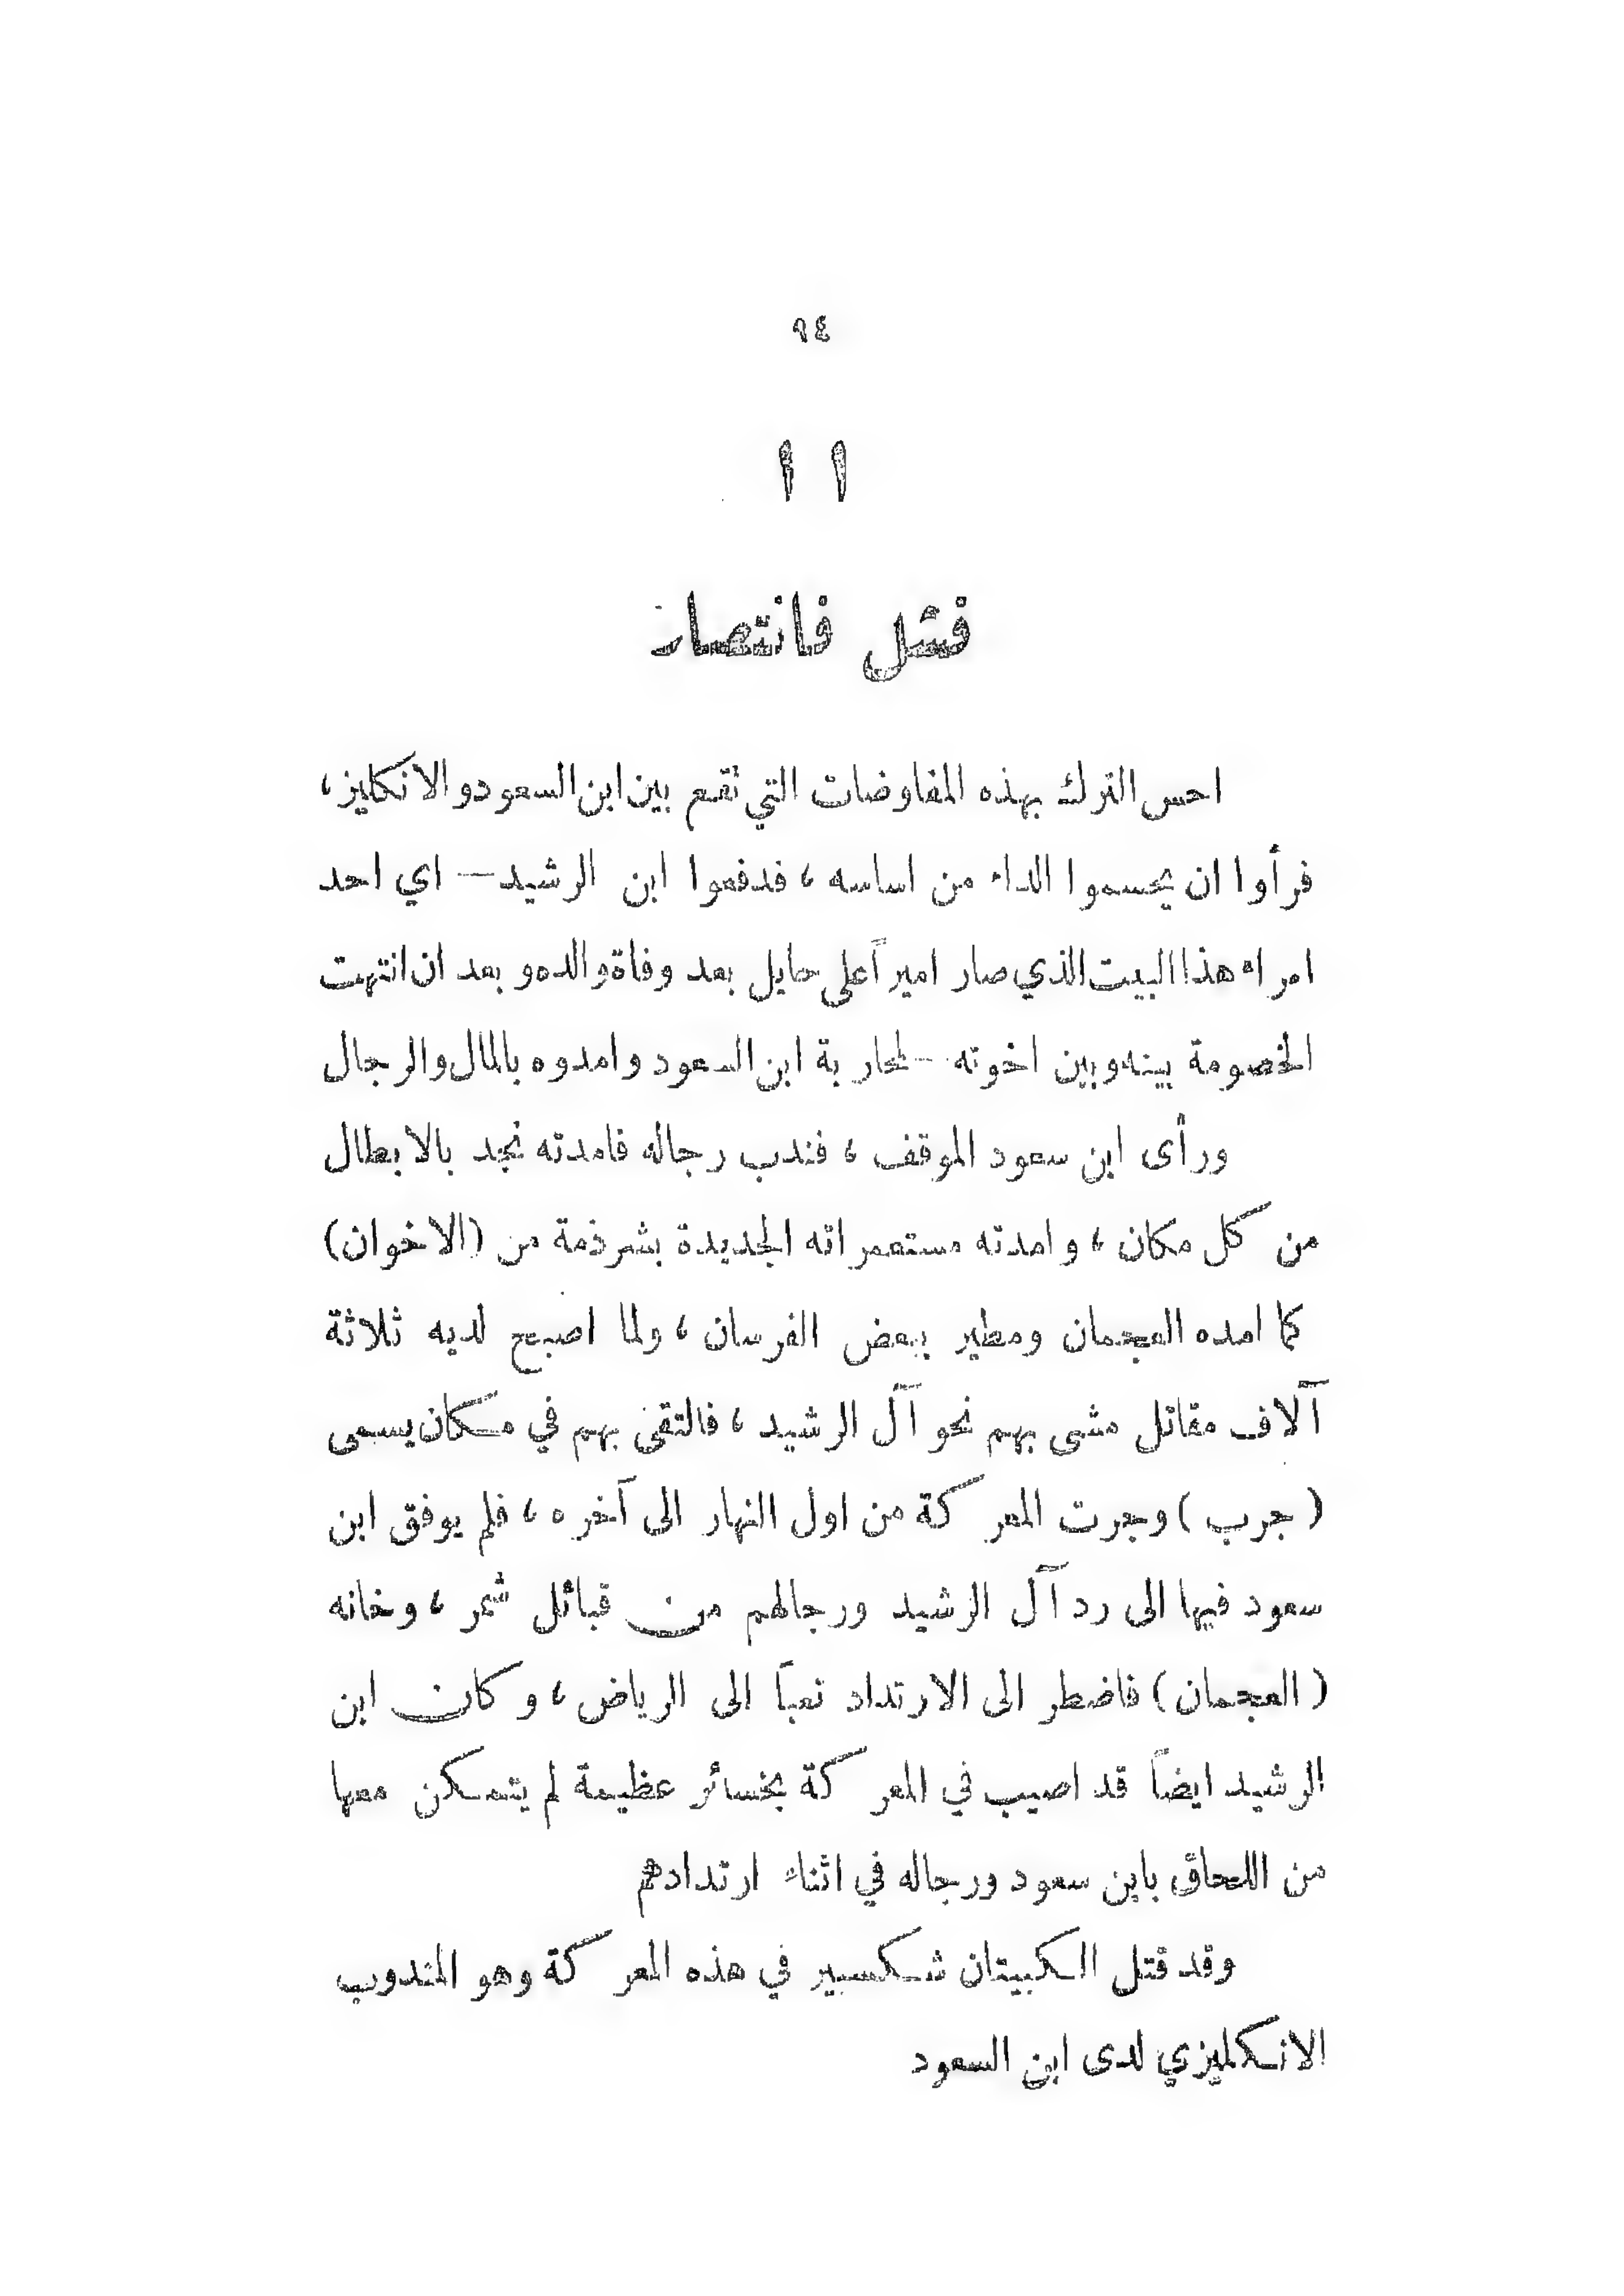 ٩٤
١١
فشل فانتصار
احس الترك بهذه المفاوضات التي تقع بين ابن السعود والانكليز،
فرأوا ان يحسموا الداء من اساسه، فدفعوا ابن الرشيد — اي احد
امراء هذا البيت الذي صار اميراً على حايل بعد وفاة والده و بعد ان انتهت
الخصومة بينه وبين اخوته — لمحاربة ابن السعود وامدوه بالمال والرجال
ورأى ابن سعود الموقف، فندب رجاله فامدته نجد بالابطال
من كل مكان، وامدته مستعمراته الجديدة بشرذمة من (الاخوان)
كما امده العجمان ومطير ببعض الفرسان، ولما اصبح لديه ثلاثة
آلاف مقاتل مشى بهم نحو آل الرشيد، فالتقى بهم في مكان يسمى
(جرب) وجرت المعركة من اول النهار الى آخره، فلم يوفق ابن
سعود فيها الى رد آل الرشيد ورجالهم من قبائل شمر، وخانه
(العجمان) فاضطر الى الارتداد تعباً الى الرياض، وكان ابن
الرشيد ايضاً قد اصيب في المعركة بخسائر عظيمة لم يتمكن معها
من اللحاق بابن سعود ورجاله في اثناء ارتدادهم
وقد قتل الكبيتان شكسبير في هذه المعركة وهو المندوب
الانكليزي لدى ابن السعود